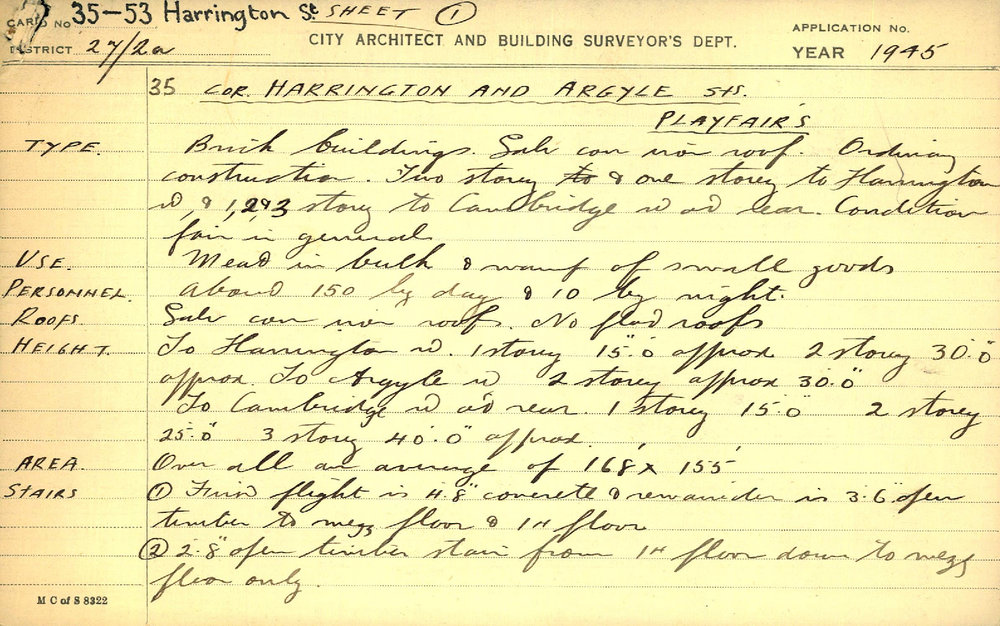 CARD No 35-53 Harrington St. SHEET ①
DISTRICT 27/2a CITY ARCHITECT AND BUILDING SURVEYOR'S DEPT. APPLICATION No.
YEAR 1945
35 COR. HARRINGTON AND ARGYLE STS.
PLAYFAIR'S
TYPE. Brick buildings. Galv corr iron roof. Ordinary
construction. Two storey to & one storey to Harrington
st, & 1, 2 & 3 storey to Cambridge st at rear. Condition
fair in general.
USE. Meat in bulk & manf of small goods
PERSONNEL. About 150 by day & 10 by night.
ROOFS. Galv corr iron roofs. No flat roofs
HEIGHT. To Harrington st. 1 storey 15'.0" approx 2 storey 30'.0"
approx. To Argyle st 2 storey approx 30'.0"
To Cambridge st at rear. 1 storey 15'.0" 2 storey
25'.0" 3 storey 40'.0" approx.
AREA. Over all an average of 168' x 155'
STAIRS ① First flight is 4'.8" concrete & remainder is 3'.6" open
timber to mezz floor & 1st floor
② 2'.8" open timber stair from 1st floor down to mezz
floor only.
M C of S 8322